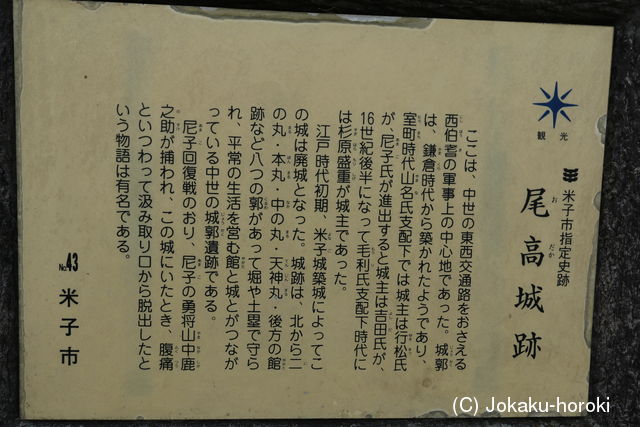 観光
米子市指定史跡
尾高城跡
おだか
ここは、中世の東西交通路をおさえる
西伯耆の軍事上の中心地であった。城郭
は、鎌倉時代から築かれたようであり、
室町時代山名氏支配下では城主は行松氏
が、尼子氏が進出すると城主は吉田氏が、
16世紀後半になって毛利氏支配下時代に
は杉原盛重が城主であった。
江戸時代初期、米子城築城によってこ
の城は廃城となった。城跡は、北から二
の丸・本丸・中の丸・天神丸・後方の館
跡など八つの郭があって堀や土塁で守ら
れ、平常の生活を営む館と城とがつなが
っている中世の城郭遺跡である。
尼子回復戦のおり、尼子の勇将山中鹿
之助が捕われ、この城にいたとき、腹痛
といつわって汲み取り口から脱出したと
いう物語は有名である。
No.43 米子市
(C) Jokaku-horoki